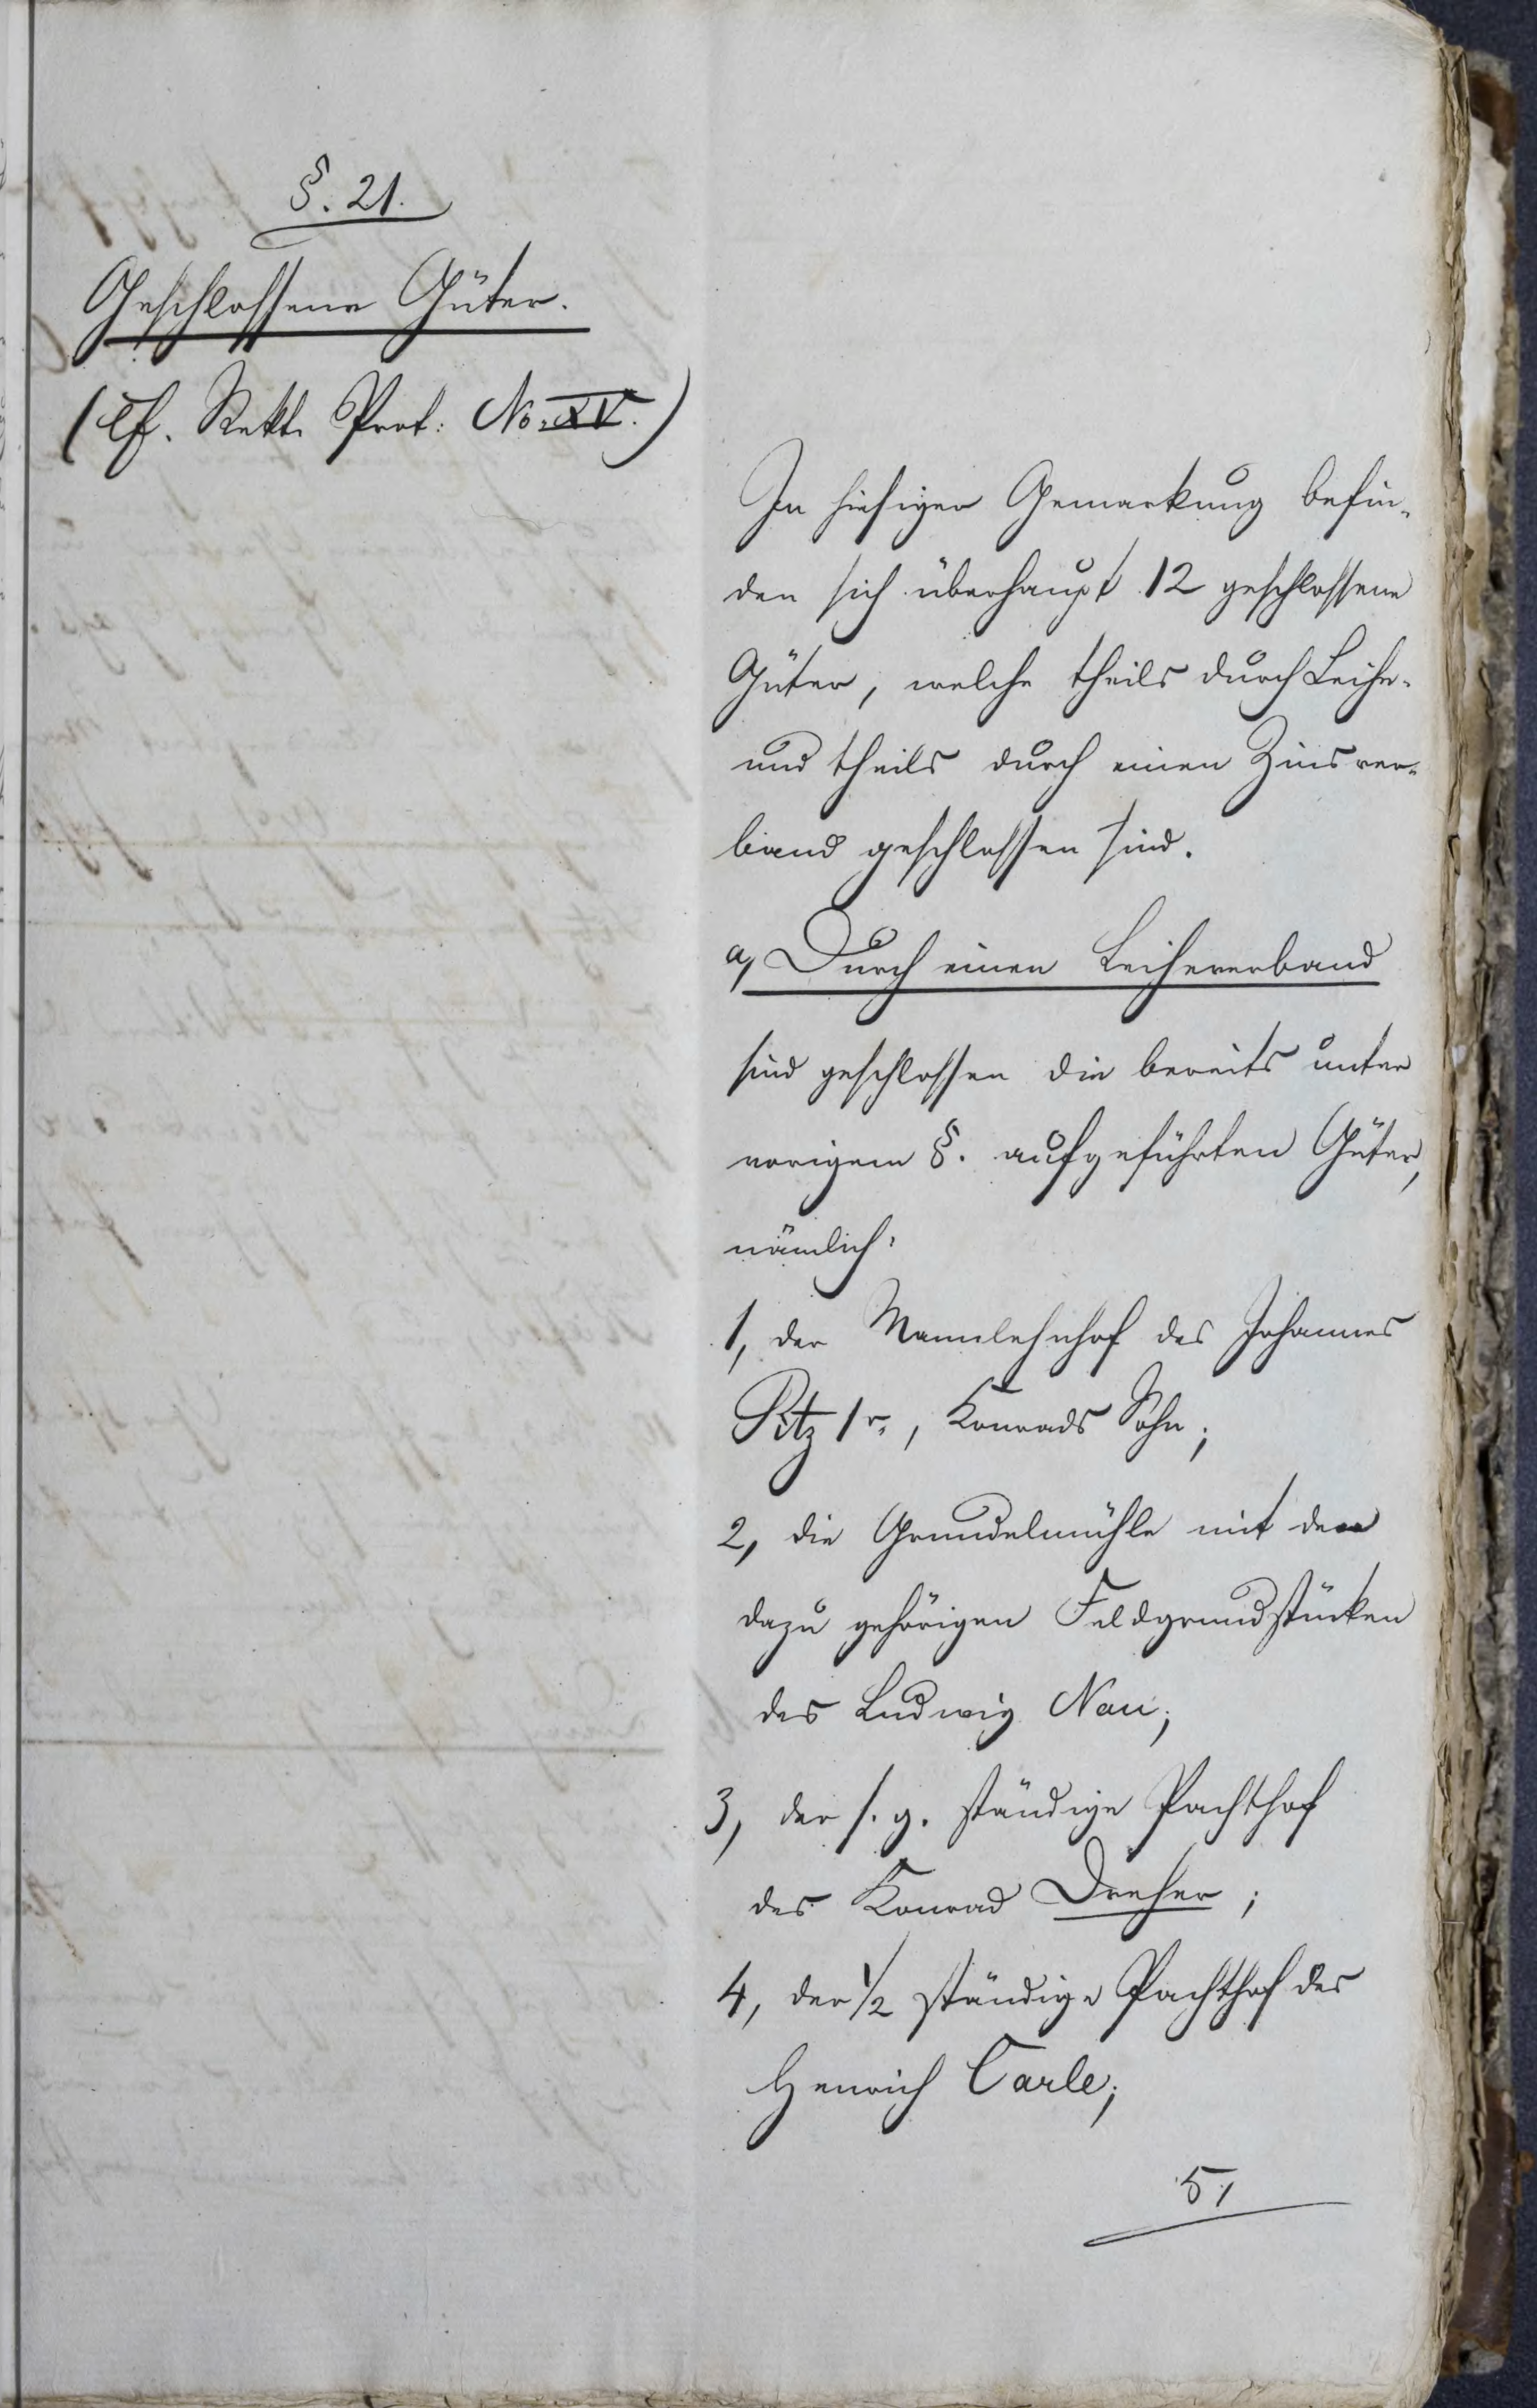 §. 21.
Geschlossene Güter.
(Cf. Rekt. Prot: No. XV.)
In hiesiger Gemarkung befin-
den sich überhaupt 12 geschlossene
Güter, welche theils durch Leihe-
und theils durch einen Zinsver-
band geschlossen sind.
a, Durch einen Leiheverband
sind geschlossen die bereits unter
vorigem §. aufgeführten Güter,
nämlich:
1, der Mannlehnhof des Johannes
Pitz 1r., Konrads Sohn;
2, die Grundelmühle mit den
dazu gehörigen Feldgrundstücken
des Ludwig Nau;
3, der s. g. ständige Pachthof
des Konrad Dreher;
4, der 1/2 ständige Pachthof des
Henrich Carle;
5,